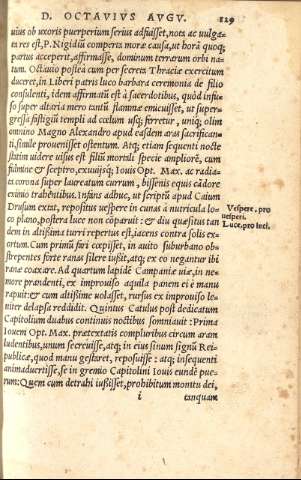 D. OCTAVIVS AVGV. 129
uius ob uxoris puerperium serius adfuisset, nota ac uulga-
ta res est, P. Nigidiũ comperta moræ causa, ut horã quoq;
partus acceperit, affirmasse, dominum terrarum orbi na-
tum. Octauio postea cum per secreta Thraciæ exercitum
duceret, in Liberi patris luco barbara ceremonia de filio
consulenti, idem affirmatũ est à sacerdotibus, quòd infu-
so super altaria mero tantũ flammæ emicuisset, ut super-
gressa fastigiũ templi ad cœlum usq; ferretur, uniq; olim
omnino Magno Alexandro apud easdem aras sacrifican-
ti, simile prouenisset ostentum. Atq; etiam sequenti nocte
statim uidere uisus est filiũ mortali specie ampliorẽ, cum
fulmine & sceptro, exuuijsq; Iouis Opt. Max. ac radia-
ta corona super laureatum currum, bissenis equis cãdore
eximio trahentibus. Infans adhuc, ut scriptũ apud Caium
Drusum extat, repositus uespere in cunas à nutricula lo-
co plano, postera luce non cõparuit: & diu quæsitus tan
dem in altissima turri repertus est, iacens contra solis ex-
ortum. Cum primũ fari cœpisset, in auito suburbano ob-
strepentes forte ranas silere iussit, atq; ex eo negantur ibi
ranæ coaxare. Ad quartum lapidẽ Campaniæ uiæ, in ne-
more prandenti, ex improuiso aquila panem ei è manu
rapuit: & cum altissime uolasset, rursus ex improuiso le-
niter delapsa reddidit. Quintus Catulus post dedicatum
Capitolium duabus continuis noctibus somniauit: Prima
Iouem Opt. Max. prætextatis compluribus circum aram
ludentibus, unum secreuisse, atq; in eius sinum signũ Rei-
publicæ, quod manu gestaret, reposuisse: atq; insequenti
animaduertisse, se in gremio Capitolini Iouis eundẽ pue-
rum: Quem cum detrahi iussisset, prohibitum monitu dei,
i tanquam
Vespere, pro
uesperi.
Luce, pro luci.